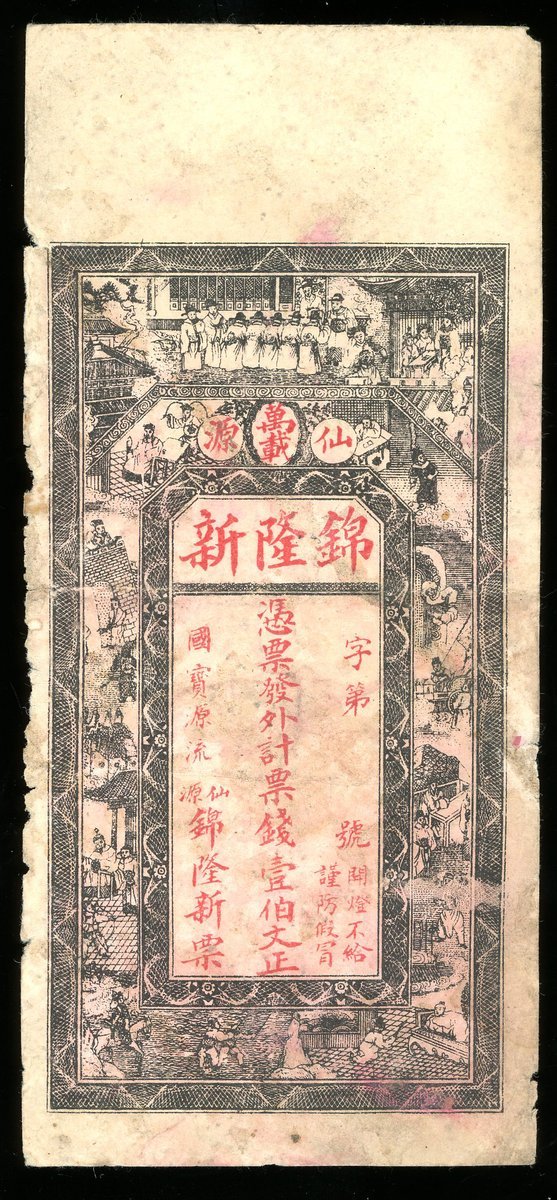 仙 萬載 源
錦隆新
字第 號
開燈不給
謹防假冒
憑票發外計票錢壹伯文正
國寶源流
仙源
錦隆新票